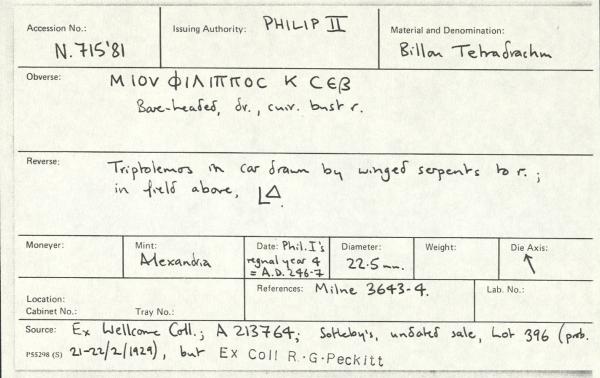 Accession No.:
N.715'81
Issuing Authority: PHILIP II
Material and Denomination:
Billon Tetradrachm
Obverse: Μ ΙΟΥ ΦΙΛΙΠΠΟC Κ CЄΒ
Bare-headed, dr., cuir. bust r.
Reverse: Triptolemos in car drawn by winged serpents to r.;
in field above, LΔ.
Moneyer:
Mint:
Alexandria
Date: Phil. I's
regnal year 4
= A.D. 246-7
Diameter:
22.5 mm.
Weight:
Die Axis:
↖
Location:
Cabinet No.: Tray No.:
References: Milne 3643-4.
Lab. No.:
Source: Ex Wellcome Coll.; A 213764; Sotheby's, undated sale, Lot 396 (prob.
P55298 (S) 21-22/2/1929), but Ex Coll R.G.Peckitt